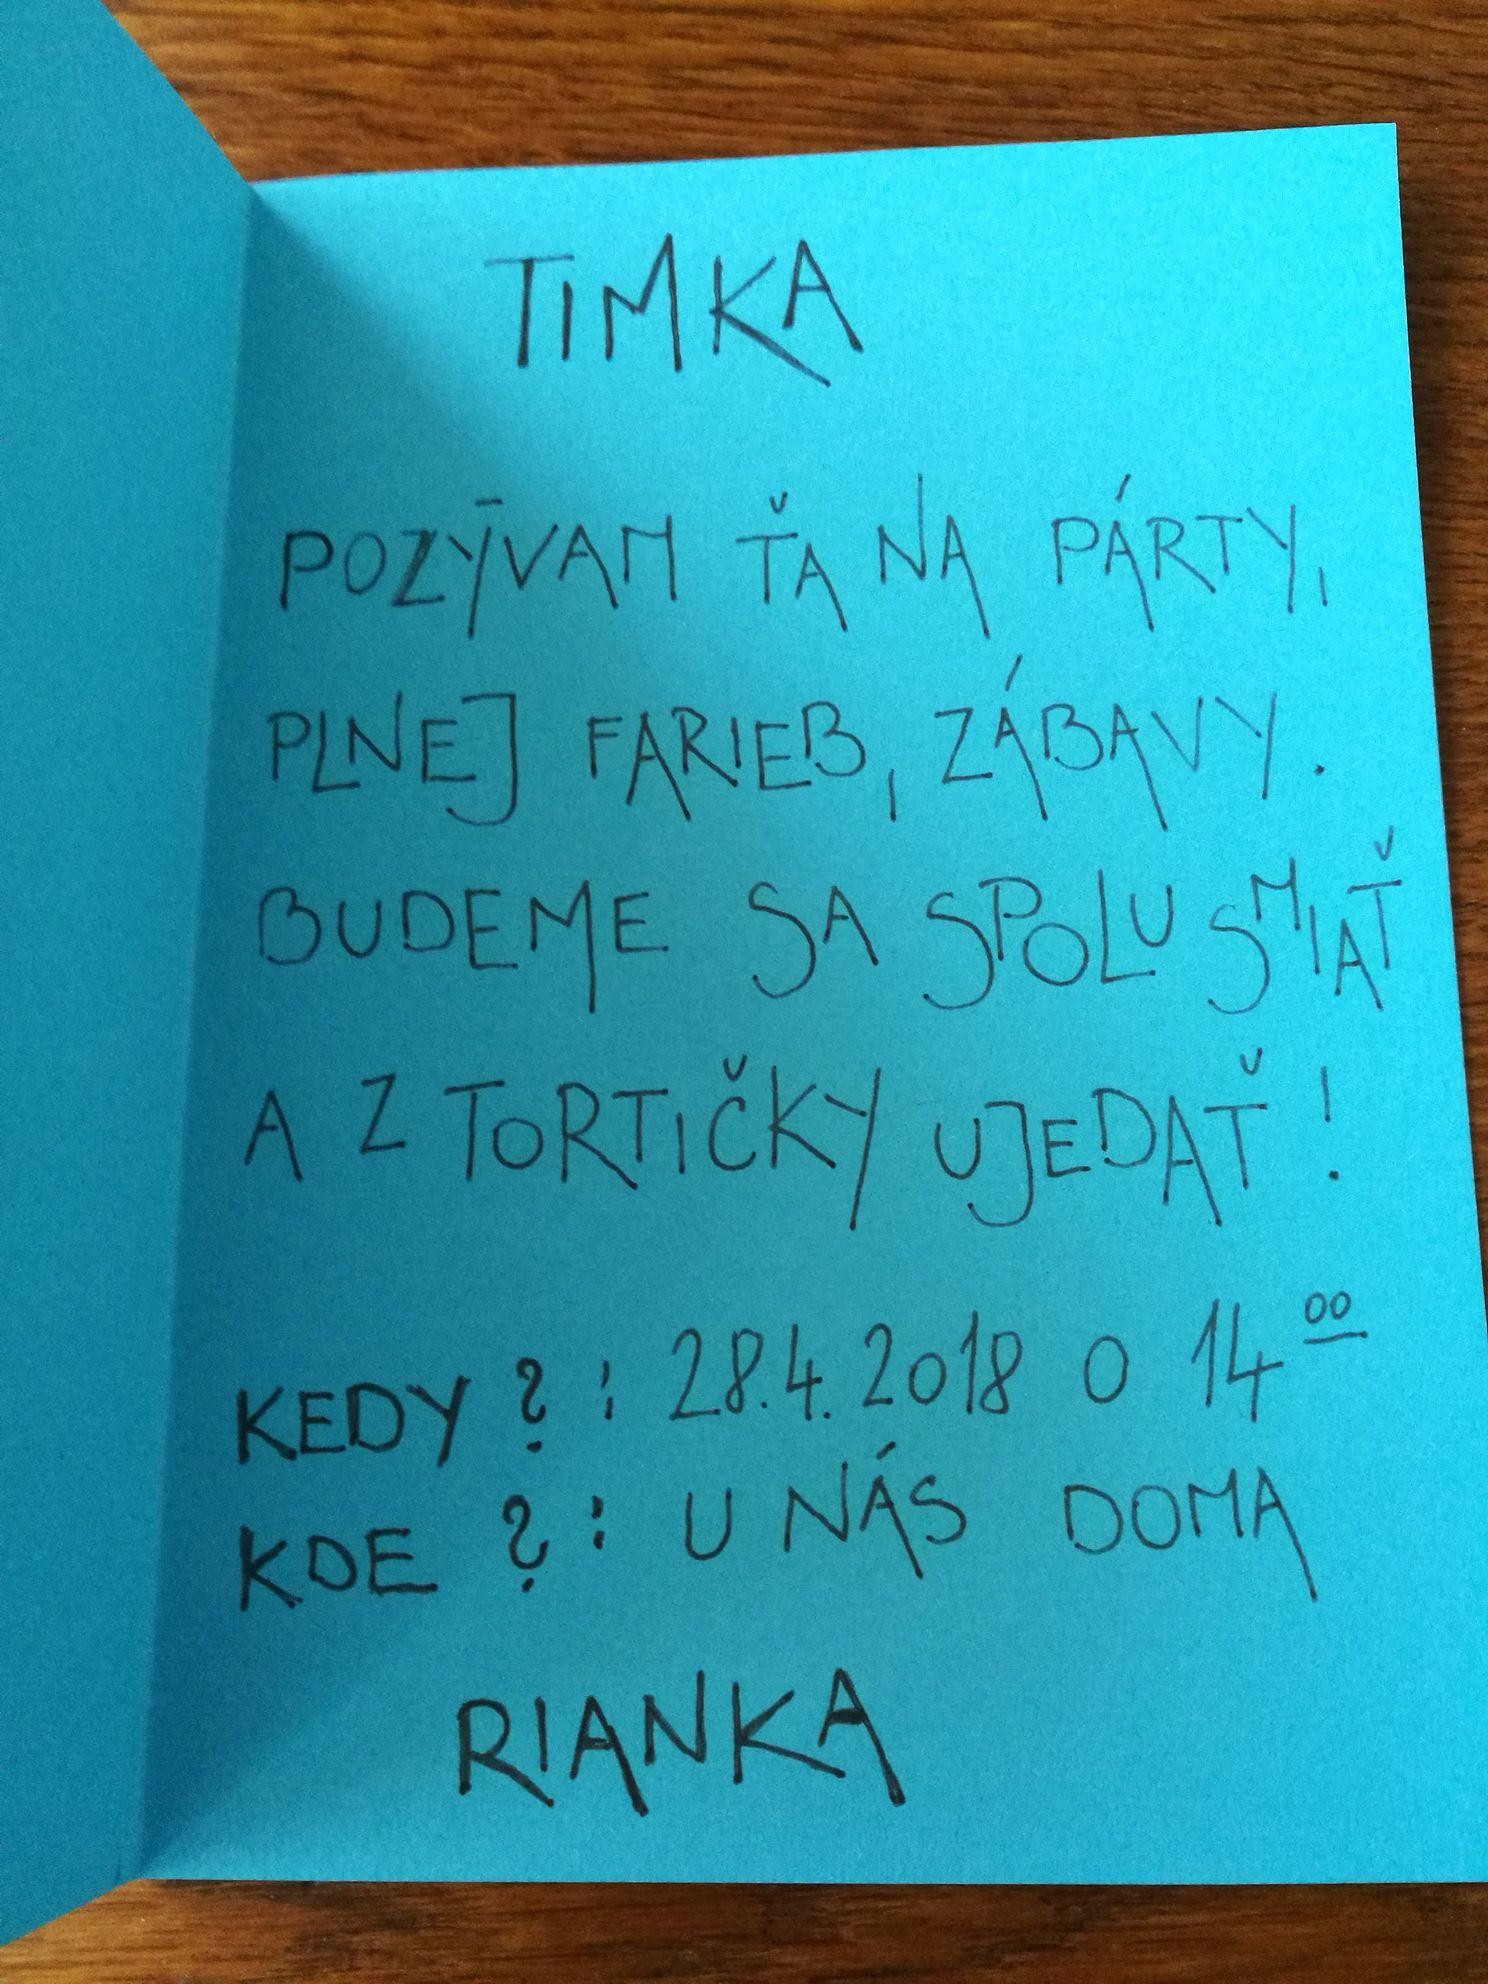 TIMKA
POZÝVAM ŤA NA PÁRTY,
PLNEJ FARIEB, ZÁBAVY.
BUDEME SA SPOLU SMIAŤ
A Z TORTIČKY UJEDAŤ!
KEDY?: 28.4.2018 O 14⁰⁰
KDE?: U NÁS DOMA
RIANKA